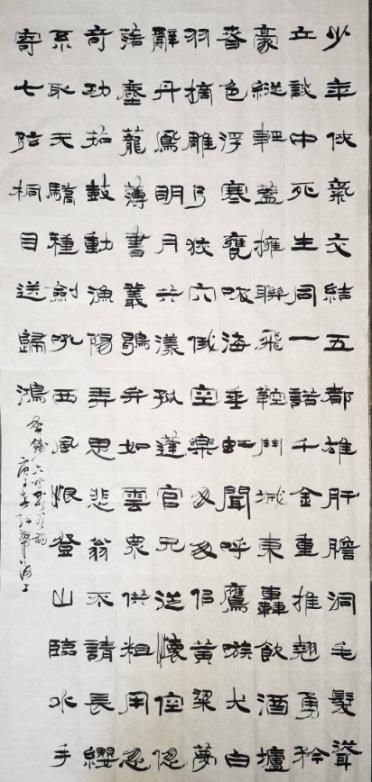 少年俠氣交結五都雄肝膽洞毛髮聳
立談中死生同一諾千金重推翹勇矜
豪縱輕蓋擁聯飛鞚鬥城東轟飲酒壚
春色浮寒甕吸海垂虹聞呼鷹嗾犬白
羽摘雕弓狡穴俄空樂匆匆似黃粱夢
辭丹鳳明月共漾孤蓬官冗從懷倥傯
落塵籠薄書叢鶡弁如雲眾供粗用忽
奇功笳鼓動漁陽弄思悲翁不請長纓
系取天驕種劍吼西風恨登山臨水手
寄七弦桐目送歸鴻
六州歌頭詞
庚子海上